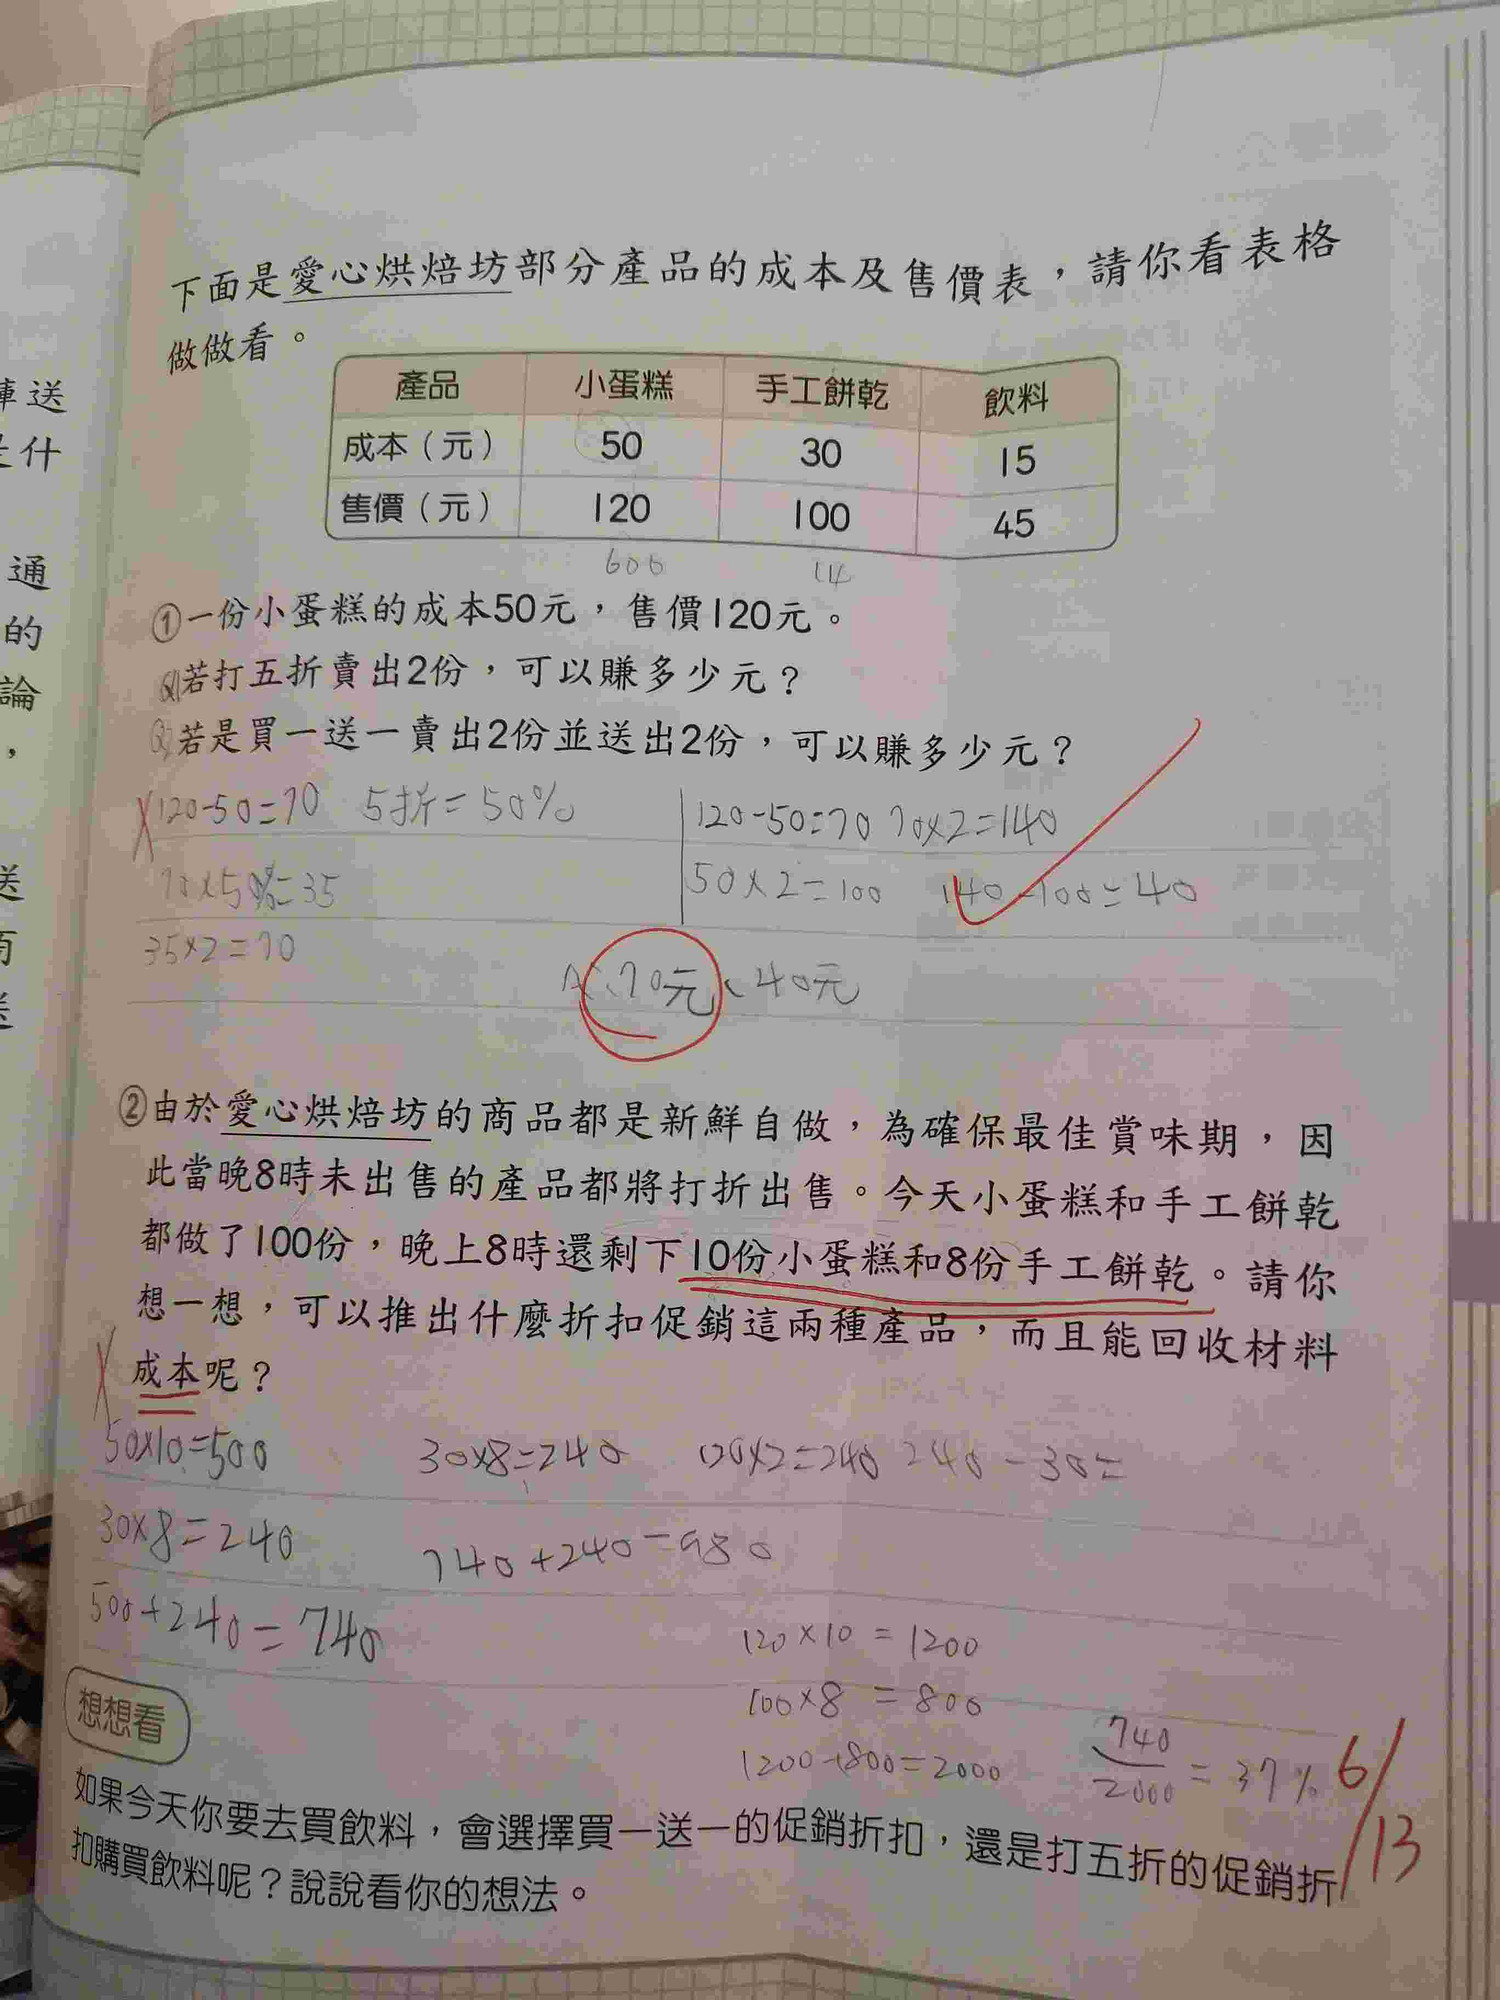 下面是愛心烘焙坊部分產品的成本及售價表，請你看表格
做做看。
產品 小蛋糕 手工餅乾 飲料
成本（元） 50 30 15
售價（元） 120 100 45
600 14
①一份小蛋糕的成本50元，售價120元。
Q1若打五折賣出2份，可以賺多少元？
Q2若是買一送一賣出2份並送出2份，可以賺多少元？
120-50=70 5折=50% 120-50=70 70×2=140
70×50%=35 50×2=100 140-100=40
35×2=70
A:70元、40元
②由於愛心烘焙坊的商品都是新鮮自做，為確保最佳賞味期，因
此當晚8時未出售的產品都將打折出售。今天小蛋糕和手工餅乾
都做了100份，晚上8時還剩下10份小蛋糕和8份手工餅乾。請你
想一想，可以推出什麼折扣促銷這兩種產品，而且能回收材料
成本呢？
50×10=500 30×8=240 120×2=240 240-30=
30×8=240 740+240=980
500+240=740
120×10=1200
100×8=800
1200+800=2000 740/2000=37%
6/13
想想看
如果今天你要去買飲料，會選擇買一送一的促銷折扣，還是打五折的促銷折
扣購買飲料呢？說說看你的想法。
通
的
論
，
送